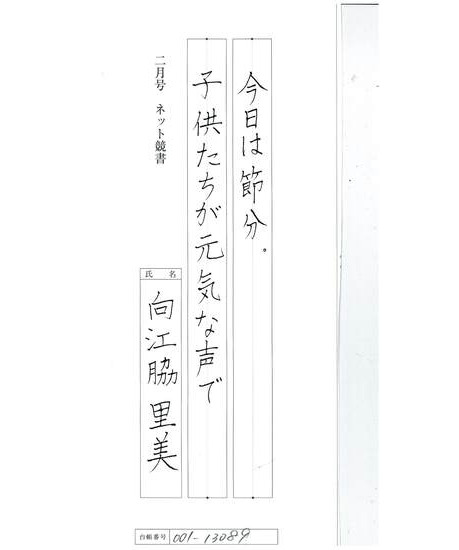 今日は節分。
子供たちが元気な声で
二月号 ネット競書
氏名
向江脇里美
台帳番号 001-13089